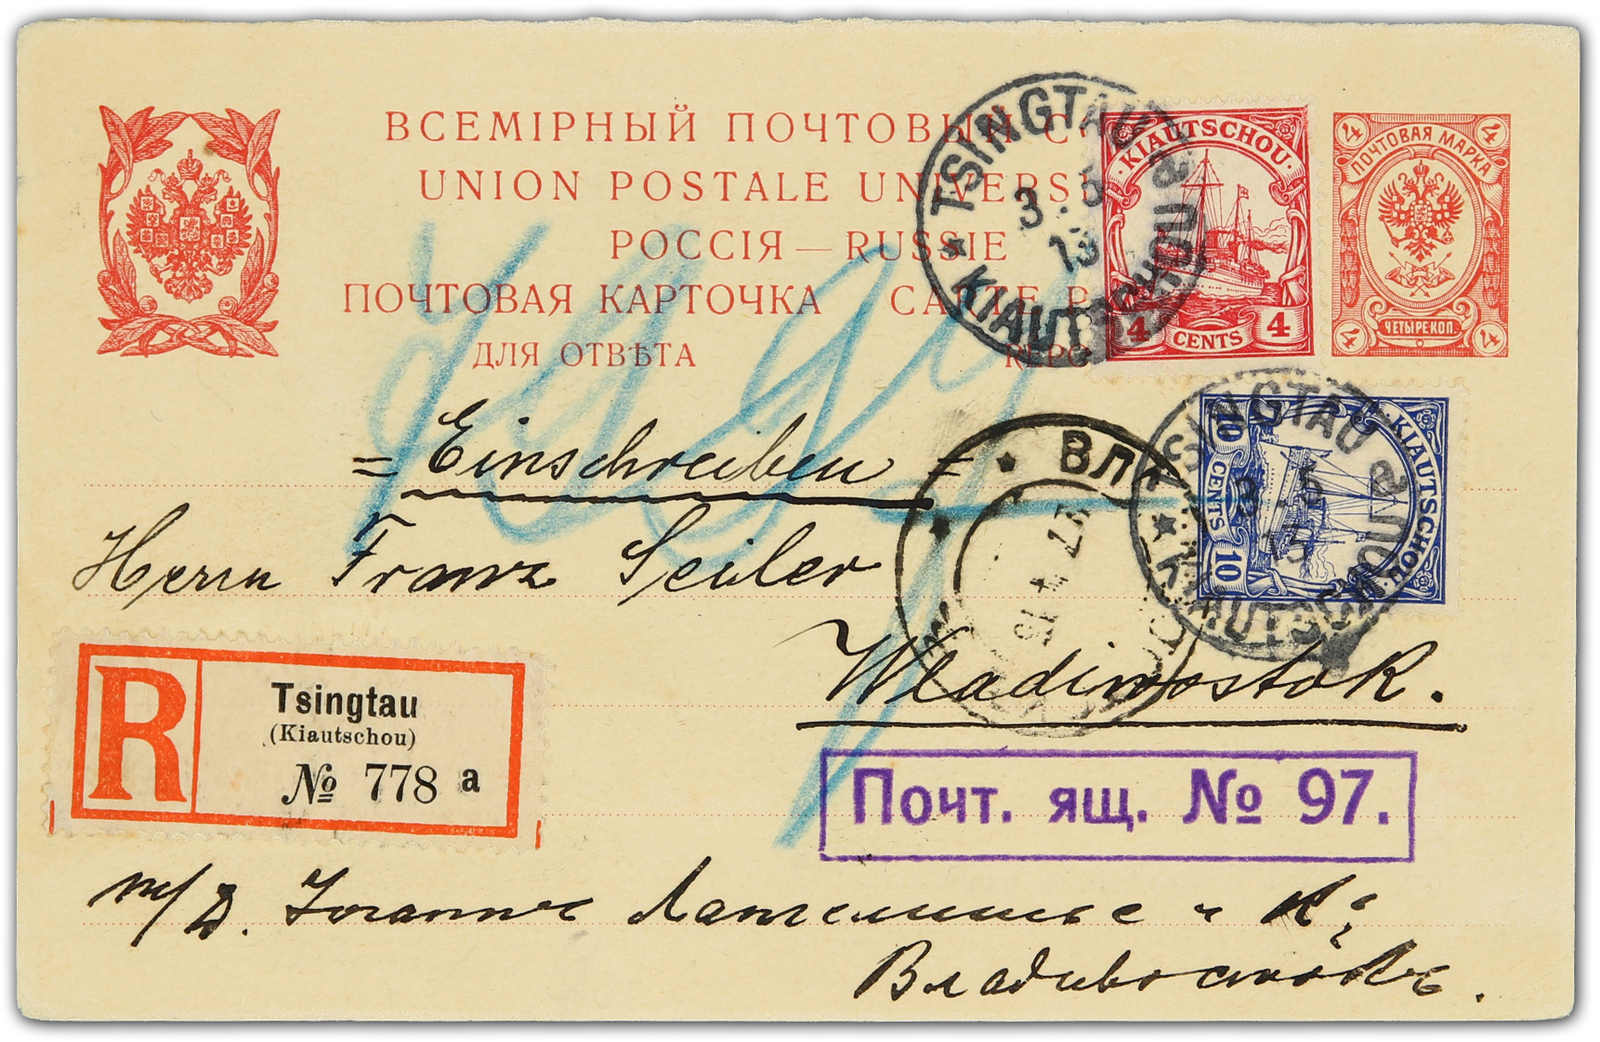 ВСЕМІРНЫЙ ПОЧТОВЫЙ С
UNION POSTALE UNIVERS
РОССІЯ — RUSSIE
ПОЧТОВАЯ КАРТОЧКА CARTE P
ДЛЯ ОТВѢТА REPO
TSINGTAU
3.5
13
KIAUTSCHOU a
KIAUTSCHOU
4 CENTS 4
4 4
ПОЧТОВАЯ МАРКА
ЧЕТЫРЕ КОП.
4 4
= Einschreiben =
Herrn Franz Seiler
Wladiwostok.
ВЛ
TSINGTAU
3.5
13
KIAUTSCHOU a
KIAUTSCHOU
10 CENTS 10
R
Tsingtau
(Kiautschou)
№ 778 a
Почт. ящ. № 97.
т/Д. и Кº
Владивостокъ.